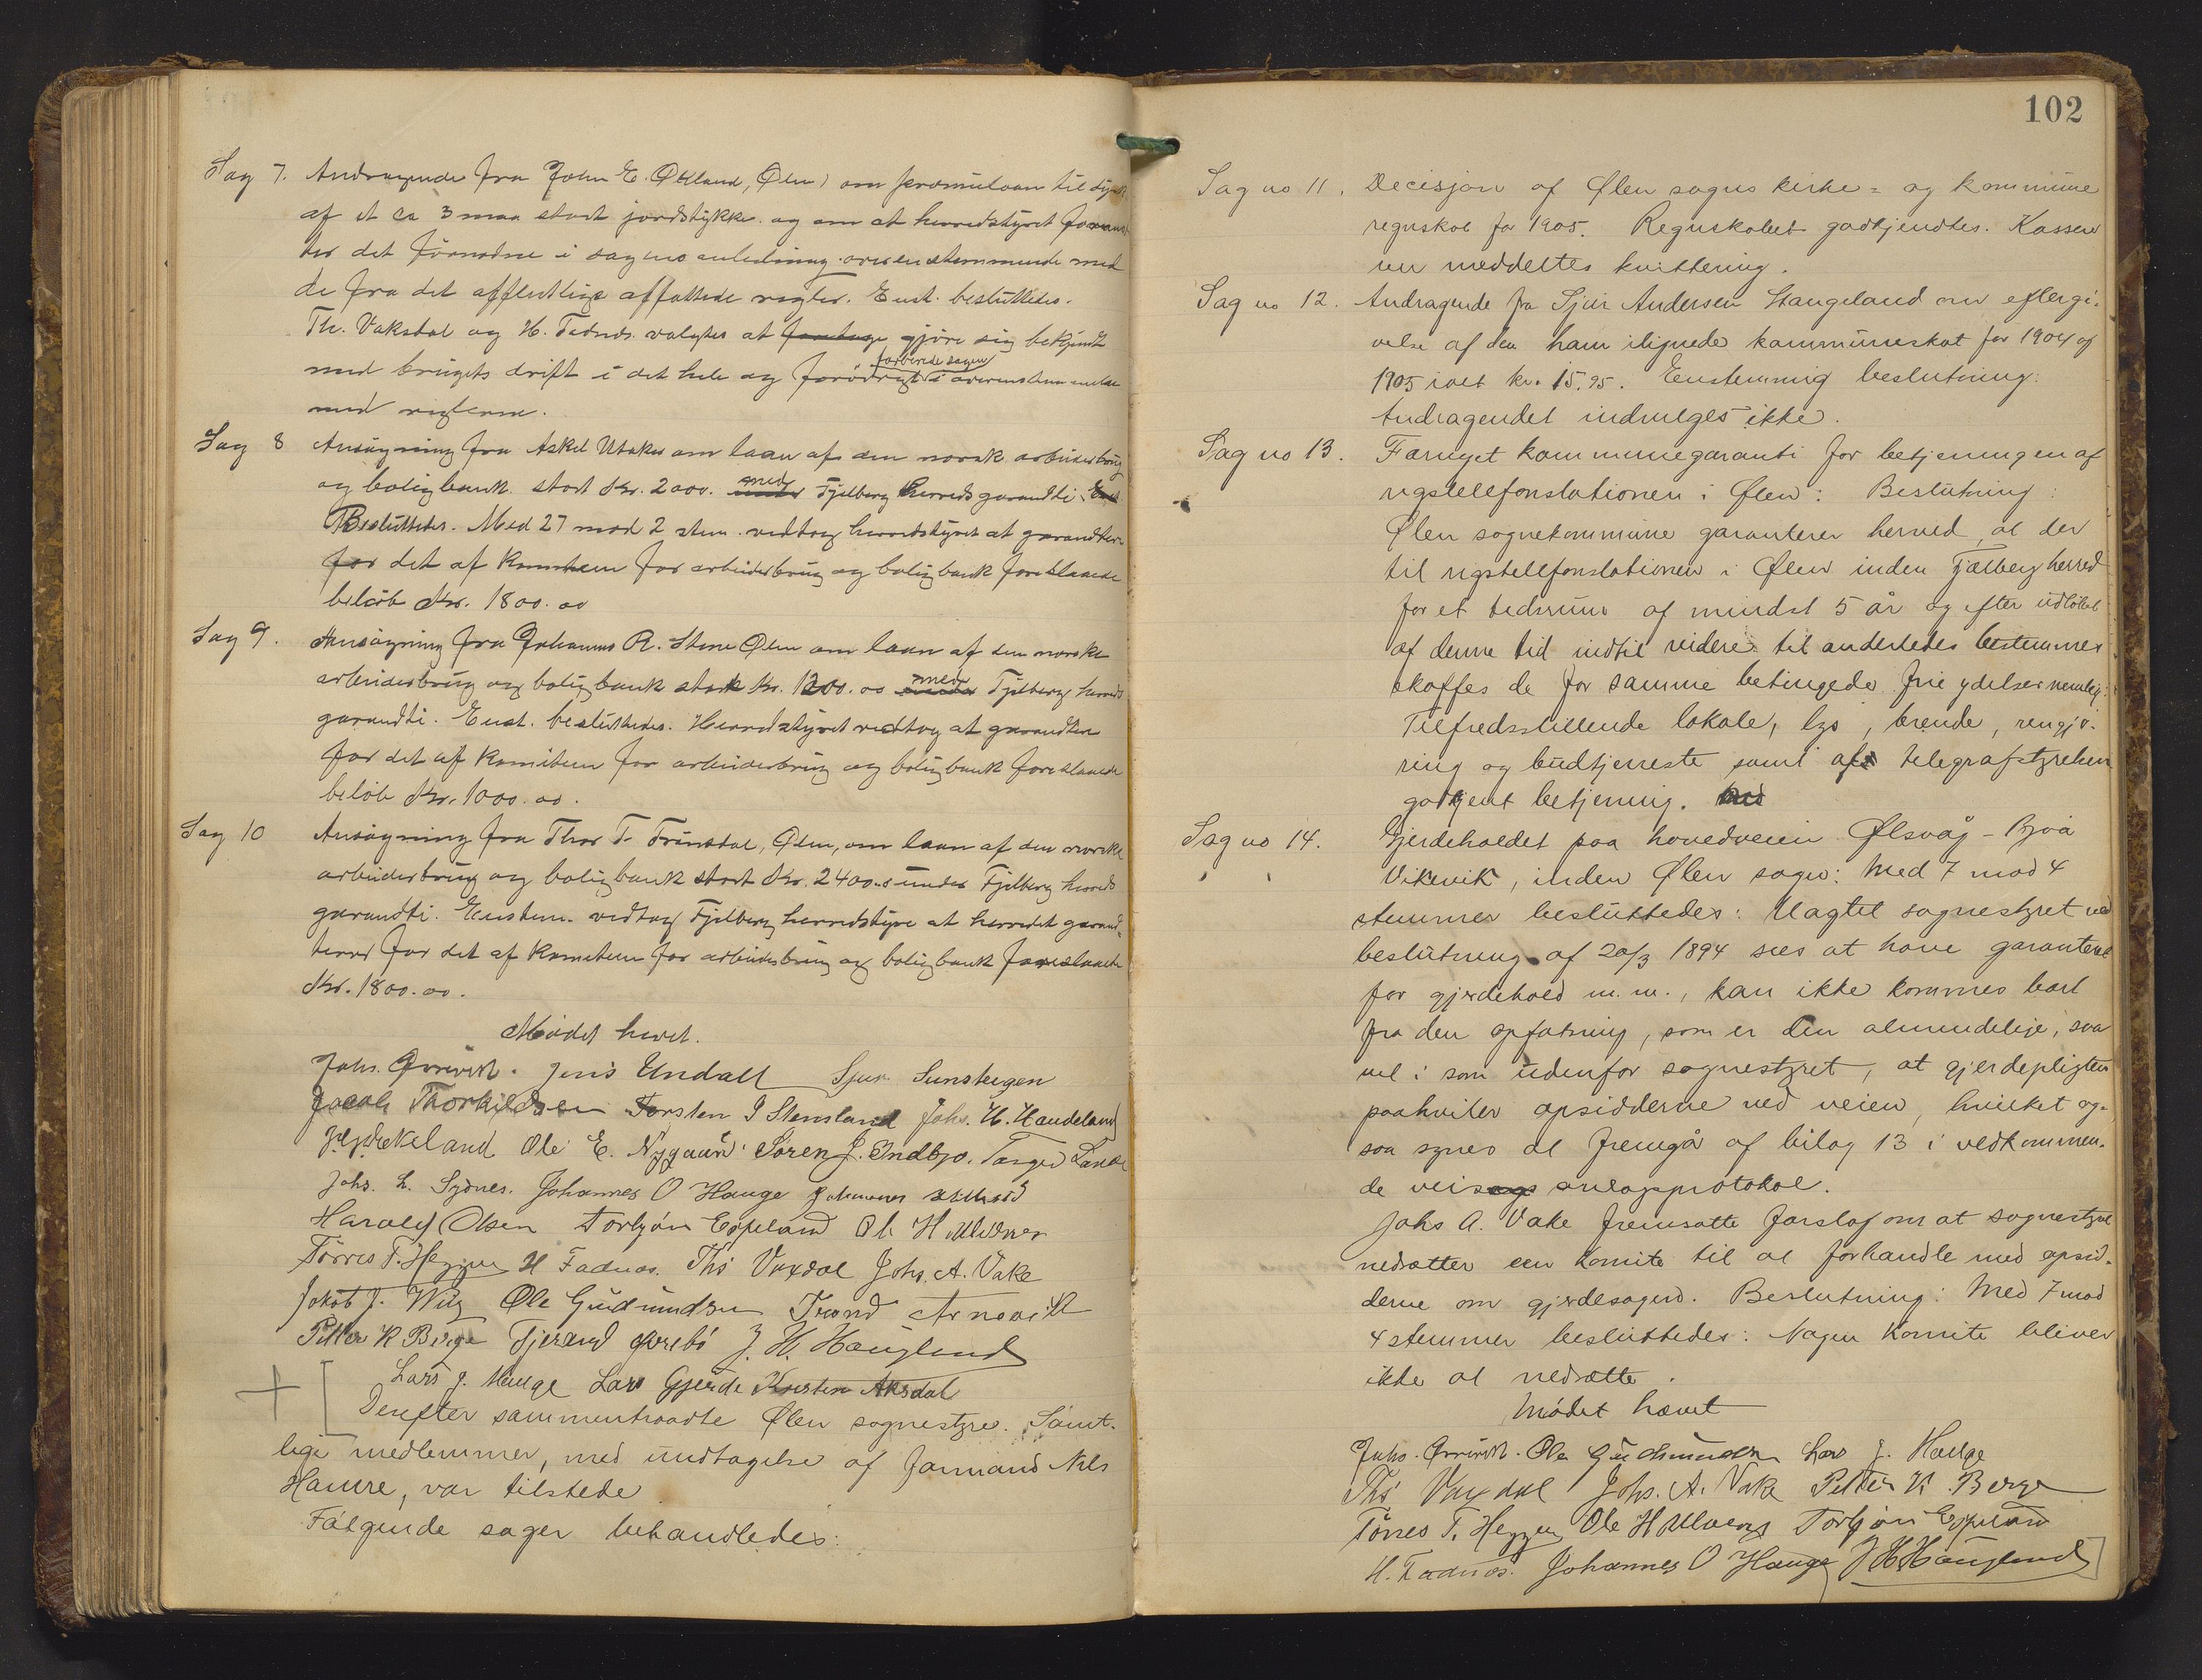 Sag 7. Andragende fra John E. Økland, Ølen, om præmielaan til dyrk.
af et ca 3 maa stort jordstykke og om at herredstyret foran
ter det fornødne i sagens anledning overensstemmende med
de fra det offentlige affattede regler. Enst. besluttedes.
Th. Vaksdal og H. Fadnes valgtes at foretage gjøre sig bekjendt
med brugets drift i det hele og forøvrigt forberede sagen i overensstemmelse
med reglerne.
Sag 8 Ansøgning fra Askel Utaker om laan af den norsk arbeiderbrug
og boligbank stort Kr. 2000. under med Fjelberg herreds garandti. Enst
Besluttedes. Med 27 mod 2 stem. vedtog herredstyret at garandtere
for det af Komiteen for arbeiderbrug og boligbank foreslaaede
beløb Kr. 1800.00
Sag 9. Ansøgning fra Johannes R. Stene Ølen om laan af den norske
arbeiderbrug og boligbank stort Kr. 1200.00 under med Fjelberg herreds
garandti. Enst. besluttedes. Herredstyret vedtog at garandtere
for det af Komiteen for arbeiderbrug og boligbank foreslaaede
beløb Kr. 1000.00.
Sag 10 Ansøgning fra Thor T. Frunstal, Ølen, om laan af den norske
arbeiderbrug og boligbank stort Kr. 2400.- under Fjelberg herreds
garandti. Enstem. vedtog Fjelberg herredstyre at herredet garand-
terer for det af Komiteen for arbeiderbrug og boligbank foreslaaede
Kr. 1800.00.
Mødet hævet.
Johs. Øvrevik. Jens Undall Sjur Sunsteigen
Jacob Thorkildsen Torsten J Stensland Johs. H. Handeland
Ole E. Nygaard Søren J. Indbjo. Torger Lande
Johs. L. Sydnes. Johannes O Hauge Johannes
Harald Olsen Torbjøn Eppeland Ole H Ulvenes
Tørres T. Heggen H Fadnes. Ths Vaxdal Johs. A. Vake
Jakob J. Wiig Ole Gudmundsen Trond Arnevik
Petter K Berge Tjerand Øvrebø J. H. Haugland
Lars J. Hauge Lars Gjerde Kristen Aksdal
Derefter sammentraadte Ølen sognestyre. Samt-
lige medlemmer, med undtagelse af formand Nils
Hamre, var tilstede
Følgende sager behandledes:
102
Sag no 11. Decisjon af Ølen sogns kirke- og kommune
regnskab for 1905. Regnskabet godkjendtes. Kassere
ren meddeltes kvittering.
Sag no 12. Andragende fra Sjur Andersen Stangeland om eftergi-
velse af den ham ilignede kommuneskat for 1904 og
1905 ialt kr. 15.95. Enstemmig beslutning:
Andragendet indvilges ikke.
Sag no 13. Fornyet kommunegaranti for betjeningen af
rigstelefonstationen i Ølen: Beslutning:
Ølen sognekommune garanterer herved, at der
til rigstelefonstationen i Ølen inden Fjælberg herred
for et tidsrum af mindst 5 år og efter udløbet
af denne tid indtil videre til anderledes bestemmes
skaffes de for samme betingede frie ydelser nemlig:
Tilfredsstillende lokale, lys, brende, rengjø-
ring og budtjeneste samt af telegrafstyrelsen
godkjent betjening.
Sag no 14. Gjerdeholdet paa hovedveien Ølsvåg - Bjoa
Vikevik, inden Ølen sogn: Med 7 mod 4
stemmer besluttedes: Uagtet sognestyret ved
beslutning af 20/3 1894 sees at have garanteret
for gjerdehold m.m., kan ikke kommes bort
fra den opfatning, som er den almindelige, saa
vel i som udenfor sognestyret, at gjerdepligten
paahviler opsidderne ved veien, hvilket og-
saa synes at fremgå af bilag 13 i vedkommen-
de veisags anlægsprotokol.
Johs A. Vake fremsatte forslag om at sognestyret
nedsætter een komite til at forhandle med opsid-
derne om gjerdesagen. Beslutning: Med 7 mod
4 stemmer besluttedes: Nogen komite bliver
ikke at nedsætte.
Mødet hævet
Johs. Øvrevik. Ole Gudmundsen Lars J. Hauge
Ths Vaxdal Johs. A. Vake Petter K. Berge
Tørres T. Heggen Ole H Ulvenes Torbjøn Eppeland
H. Fadnes. Johannes O Hauge J H Haugland